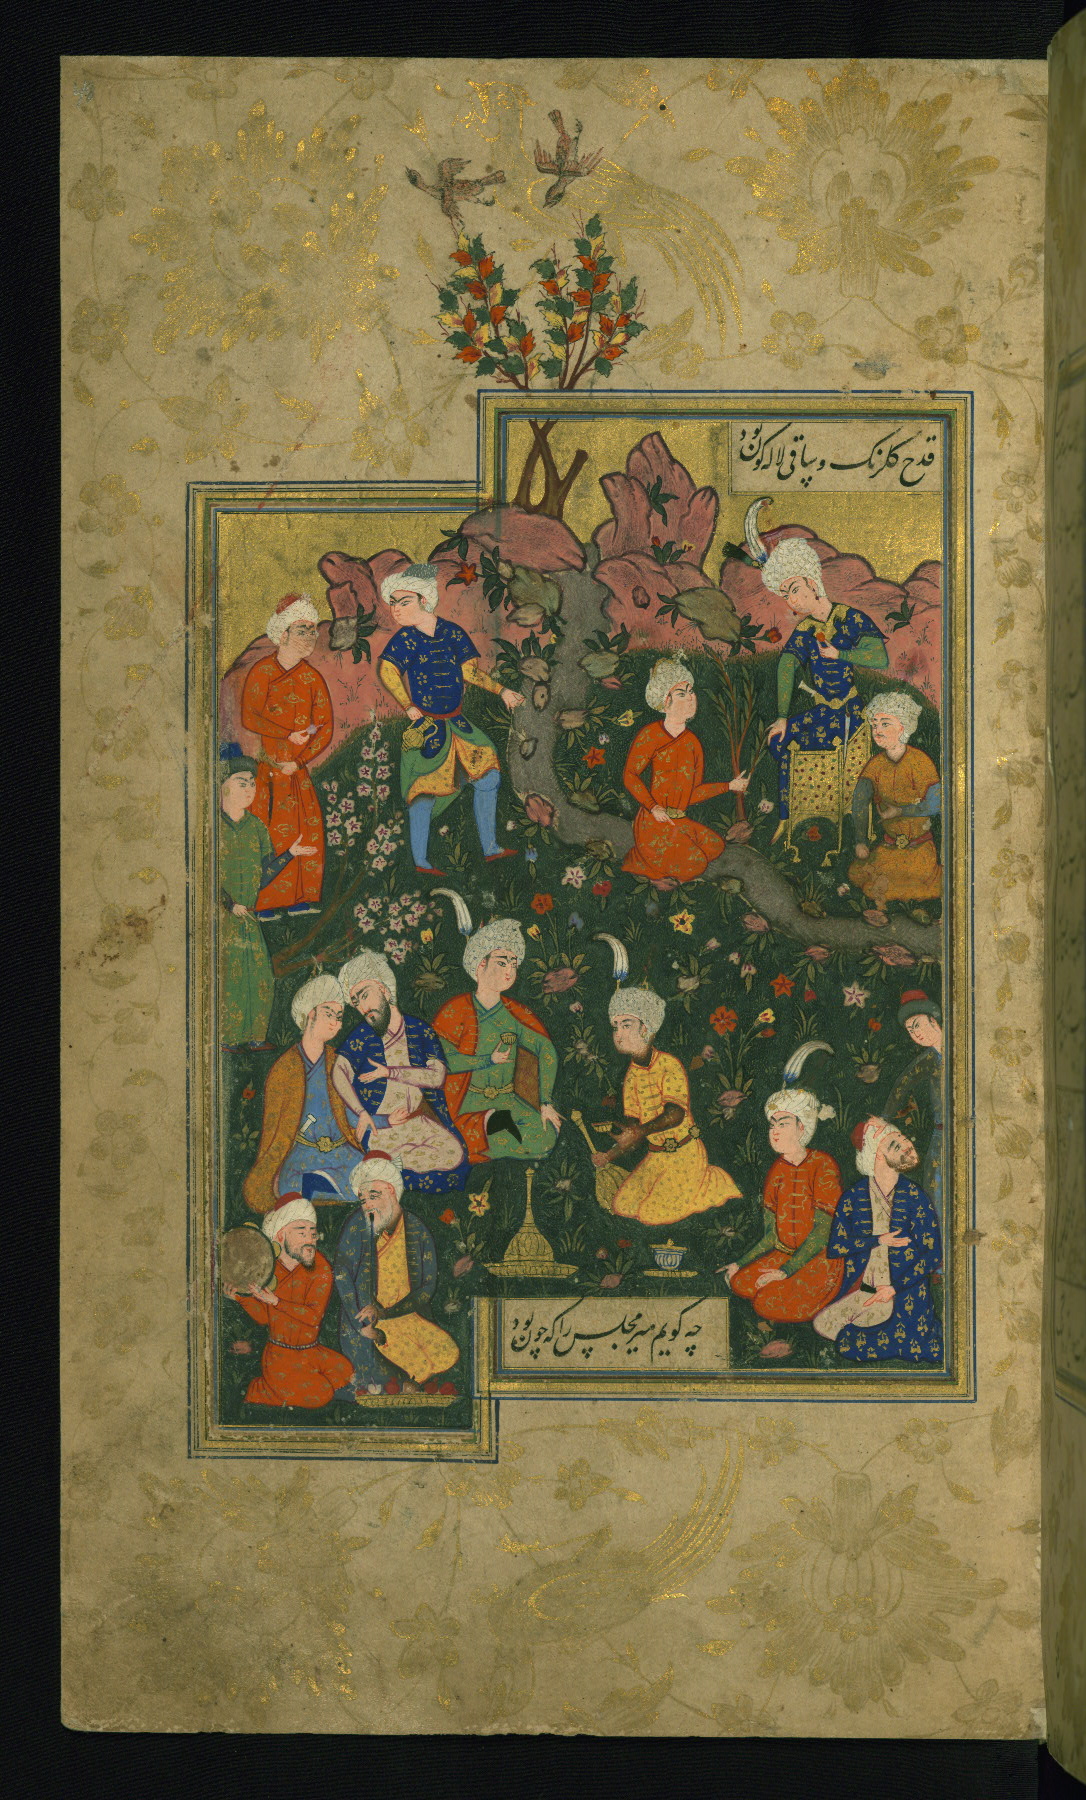 قدح گلرنگ و ساقی لاله‌گون بود
چه گویم میر مجلس را که چون بود